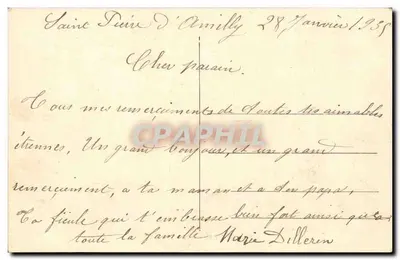 Saint Pierre d'Amilly 28 Janvier 1935
Cher parain.
Tous mes remerciments de toutes tes aimables
étrennes, Un grand bonjour, et un grand
remerciement, a ta maman et a ton papa.
Ta ficule qui t'embrasse bien fort ainsi que
toute la famille Marie Dilleren
CPARAMA